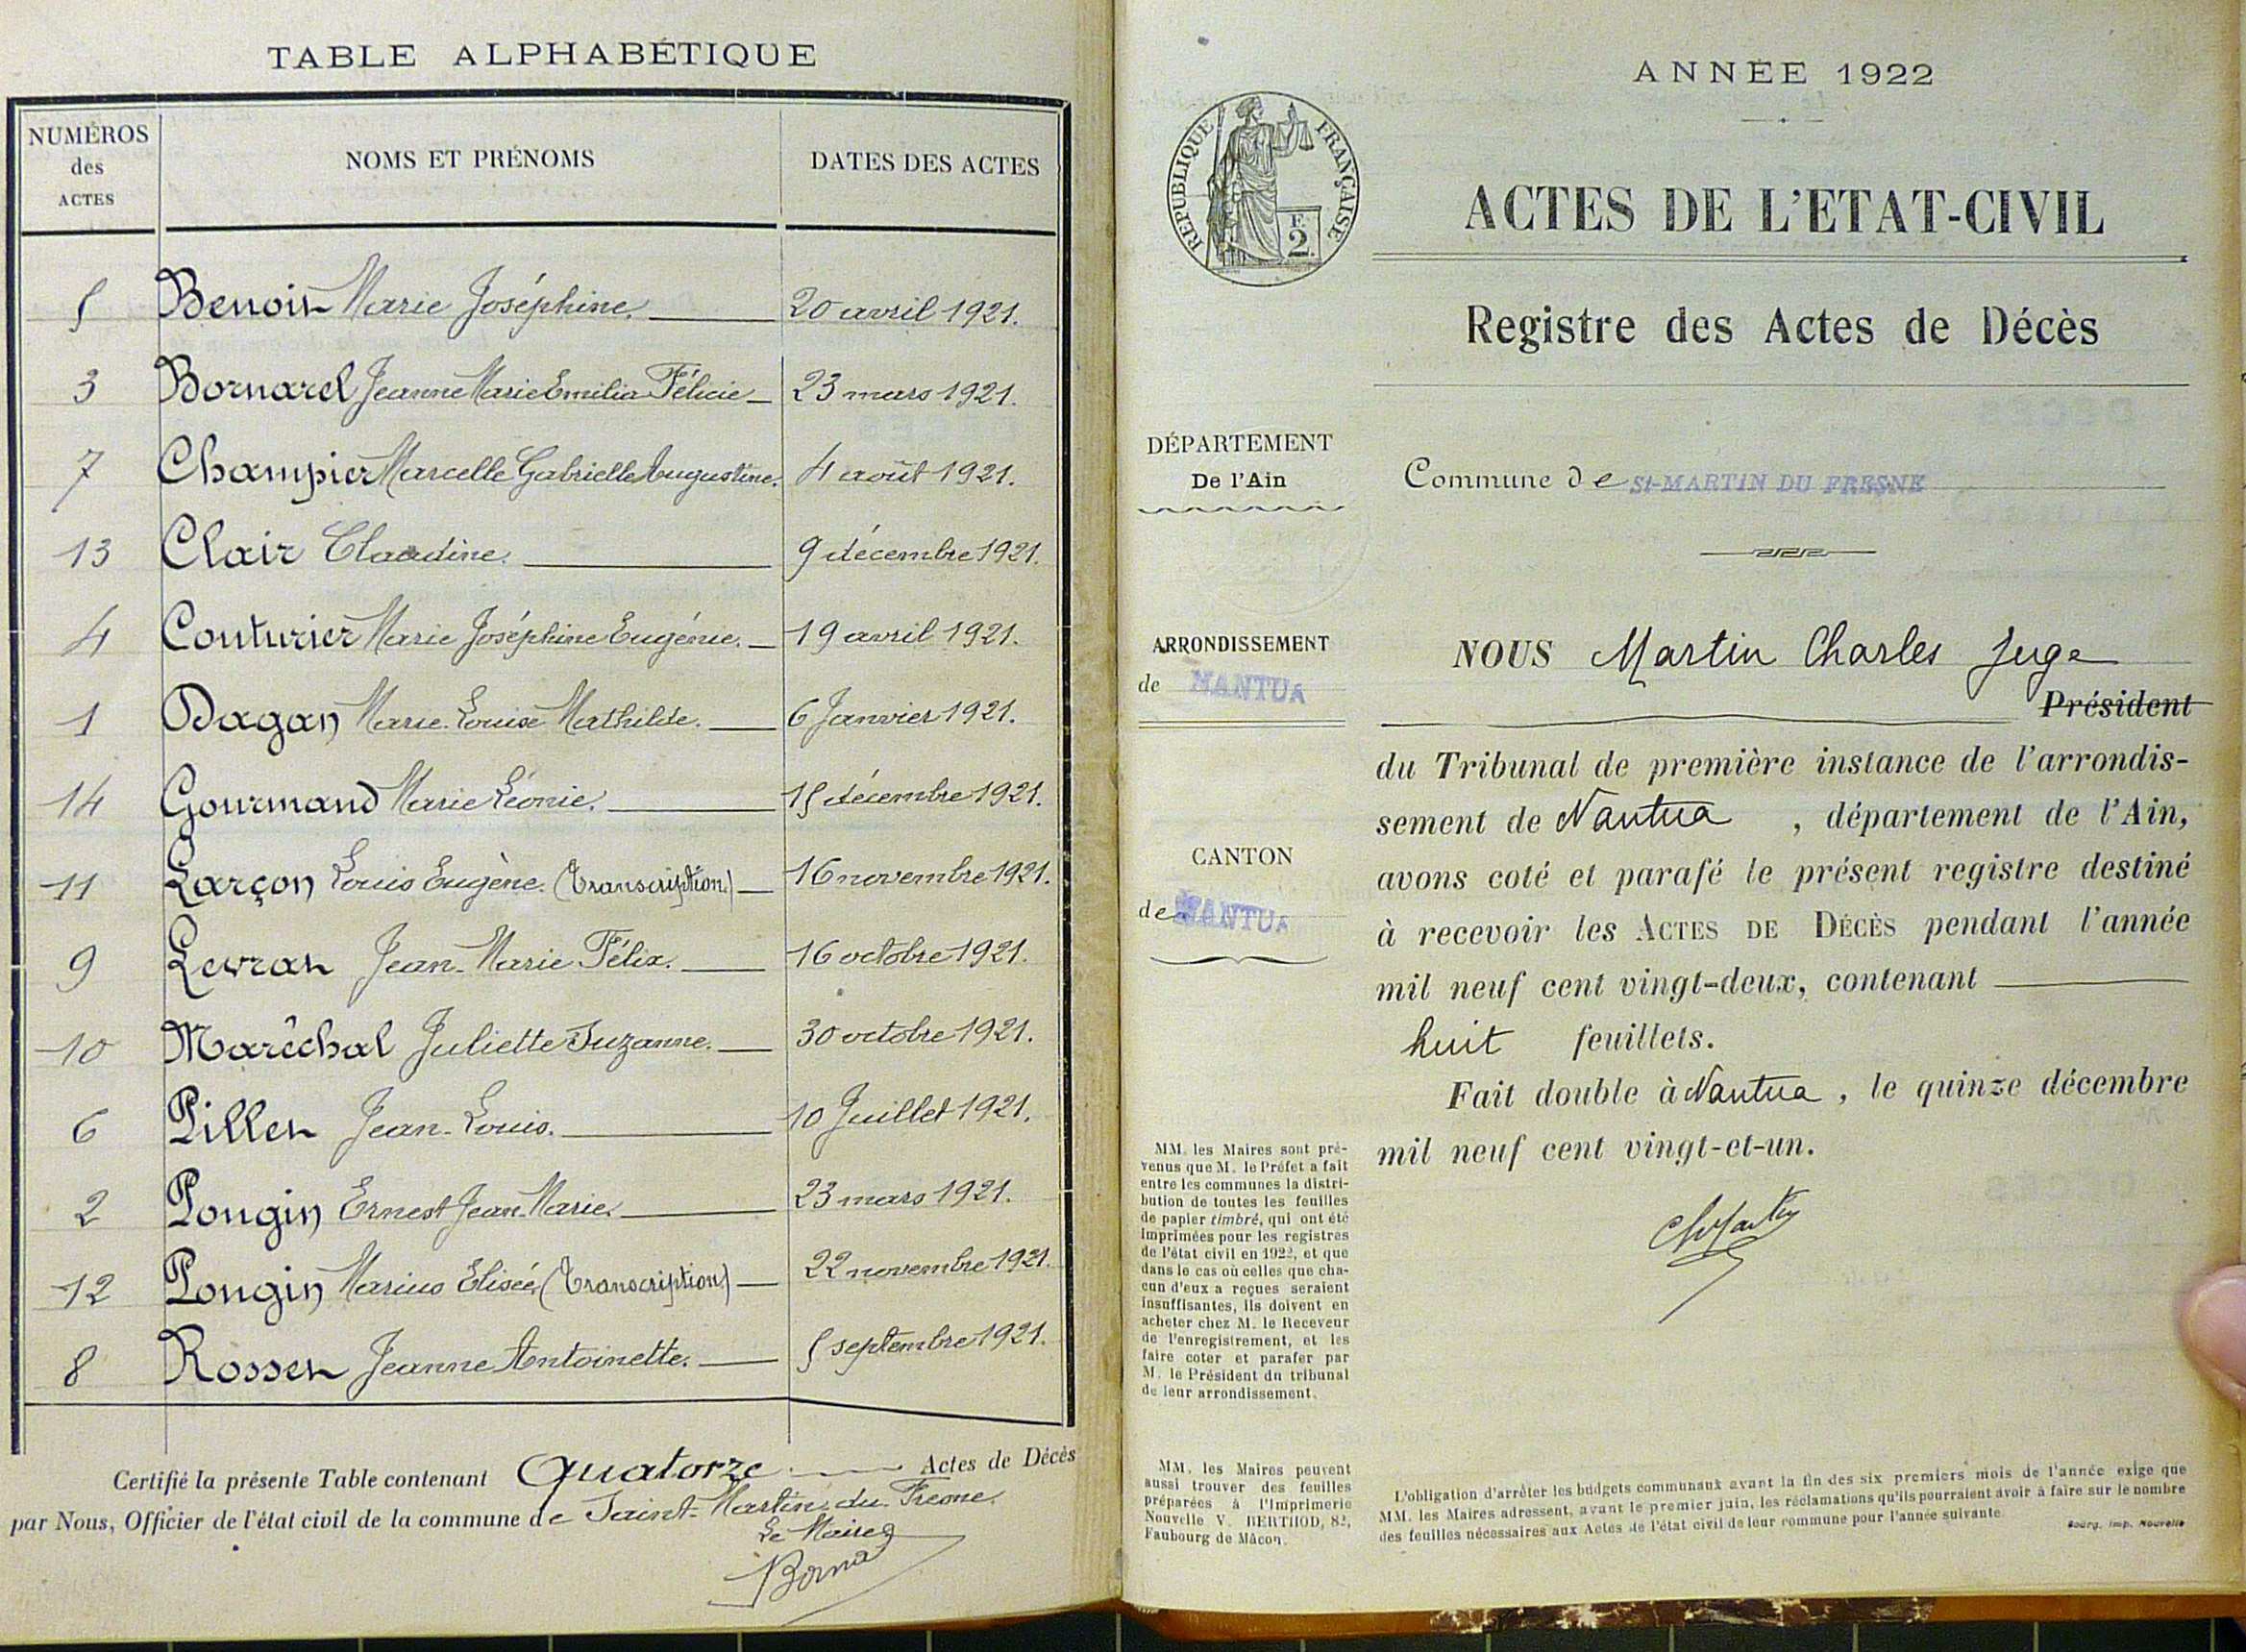 TABLE ALPHABÉTIQUE
NUMÉROS des ACTES NOMS ET PRÉNOMS DATES DES ACTES
5 Benoit Marie Joséphine. 20 avril 1921.
3 Bornarel Jeanne Marie Emilia Félicie 23 mars 1921.
7 Champier Marcelle Gabrielle Augustine. 4 août 1921.
13 Clair Claudine. 9 décembre 1921.
4 Couturier Marie Joséphine Eugénie. 19 avril 1921.
1 Dagan Marie-Louise Mathilde. 6 Janvier 1921.
14 Gourmand Marie Léonie. 15 décembre 1921.
11 Larçon Louis Eugène. (Transcription) 16 novembre 1921.
9 Levrat Jean-Marie Félix. 16 octobre 1921.
10 Maréchal Juliette Suzanne. 30 octobre 1921.
6 Pillet Jean-Louis. 10 Juillet 1921.
2 Pongin Ernest Jean-Marie. 23 mars 1921.
12 Pongin Marius Elisée (Transcription) 22 novembre 1921.
8 Rosset Jeanne Antoinette. 5 septembre 1921.
Certifié la présente Table contenant Quatorze Actes de Décès
par Nous, Officier de l'état civil de la commune de Saint-Martin-du-Fresne.
Le Maire
ANNÉE 1922
RÉPUBLIQUE FRANÇAISE
F.
2.
ACTES DE L'ETAT-CIVIL
Registre des Actes de Décès
DÉPARTEMENT
De l'Ain
Commune de St-MARTIN DU FRESNE
ARRONDISSEMENT
de NANTUA
CANTON
de NANTUA
NOUS Martin Charles Juge
Président
du Tribunal de première instance de l'arrondis-
sement de Nantua , département de l'Ain,
avons coté et parafé le présent registre destiné
à recevoir les ACTES DE DÉCÈS pendant l'année
mil neuf cent vingt-deux, contenant
huit feuillets.
Fait double à Nantua , le quinze décembre
mil neuf cent vingt-et-un.
Ch Martin
MM. les Maires sont pré-
venus que M. le Préfet a fait
entre les communes la distri-
bution de toutes les feuilles
de papier timbré, qui ont été
imprimées pour les registres
de l'état civil en 1922, et que
dans le cas où celles que cha-
cun d'eux a reçues seraient
insuffisantes, ils doivent en
acheter chez M. le Receveur
de l'enregistrement, et les
faire coter et parafer par
M. le Président du tribunal
de leur arrondissement.
MM. les Maires peuvent
aussi trouver des feuilles
préparées à l'Imprimerie
Nouvelle V. BERTHOD, 82,
Faubourg de Mâcon.
L'obligation d'arrêter les budgets communaux avant la fin des six premiers mois de l'année exige que
MM. les Maires adressent, avant le premier juin, les réclamations qu'ils pourraient avoir à faire sur le nombre
des feuilles nécessaires aux Actes de l'état civil de leur commune pour l'année suivante.
Bourg, Imp. Nouvelle